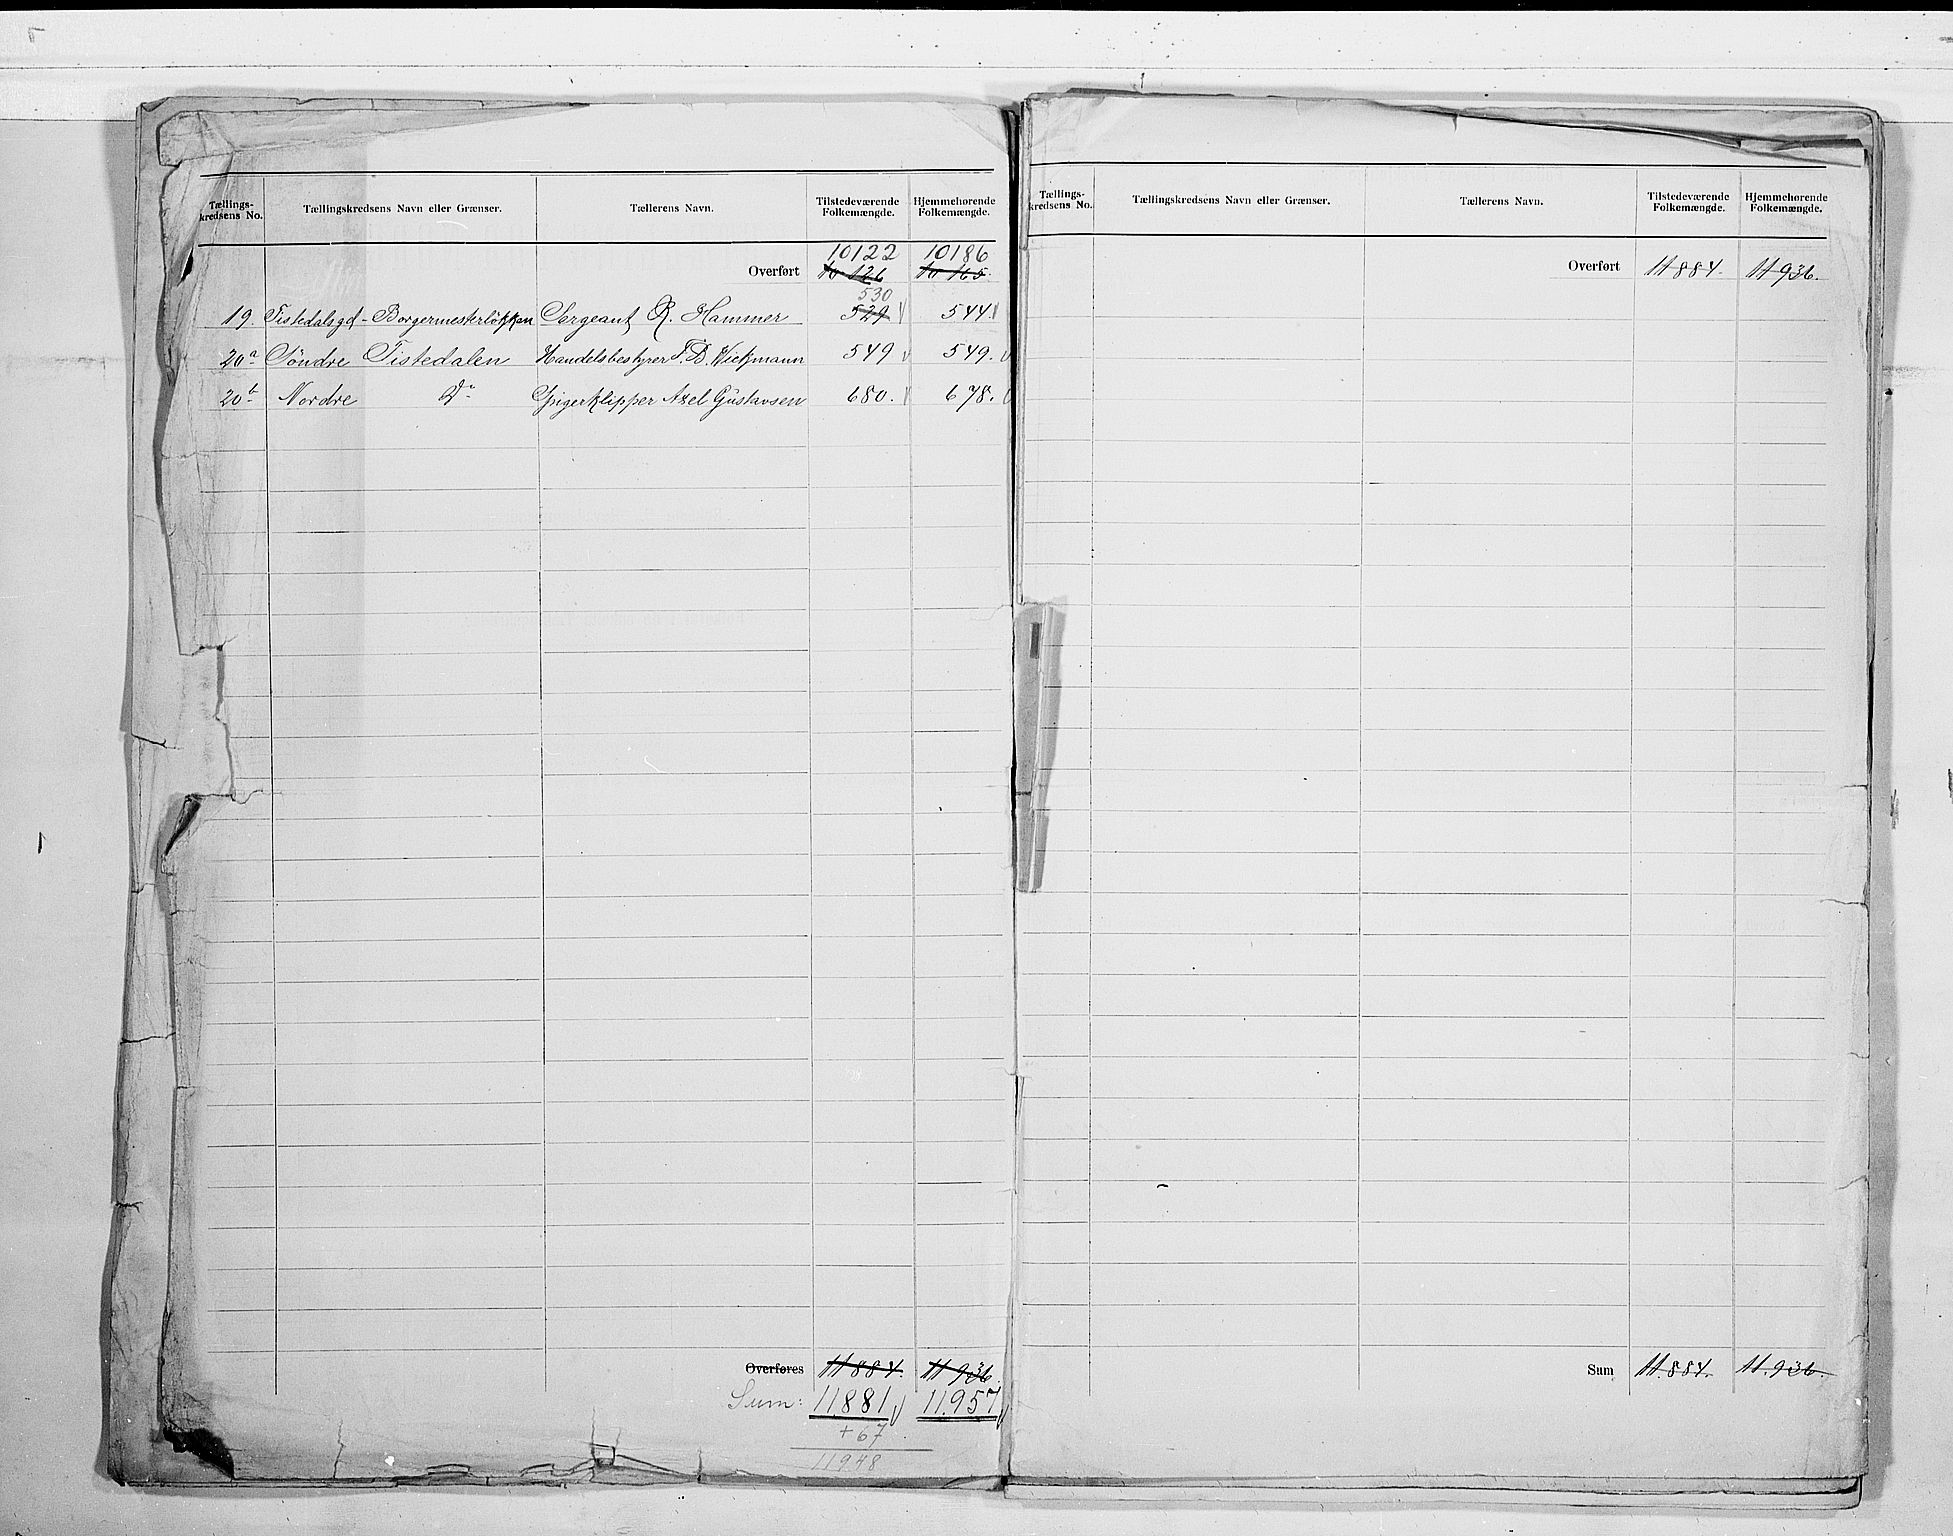 Tællings-kredsens No. Tællingskredsens Navn eller Grænser. Tællerens Navn. Tilstedeværende Folkemængde. Hjemmehørende Folkemængde.
10122 10186
Overført 10 126 10 165.
530
19. Tistedalsgd - Borgermesterløkken Sergeant R. Hammer 529 544
20a Söndre Tistedalen Handelsbestyrer F. D. Wickmann 549 549.
20b Nordre Do Spigerklipper Axel Gustavsen 680. 678.
Overføres 11 884. 11 936.
Sum: 11881 11.957
+67
11948
Tællings-kredsens No. Tællingskredsens Navn eller Grænser. Tællerens Navn. Tilstedeværende Folkemængde. Hjemmehørende Folkemængde.
Overført 11 884. 11 936.
Sum 11.884. 11.936.